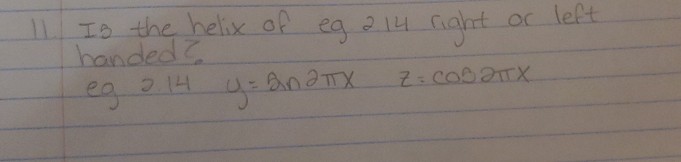 11. Is the helix of eg 2.14 right or left
handed?
eg 2.14 y = sin2πx z = cos2πx